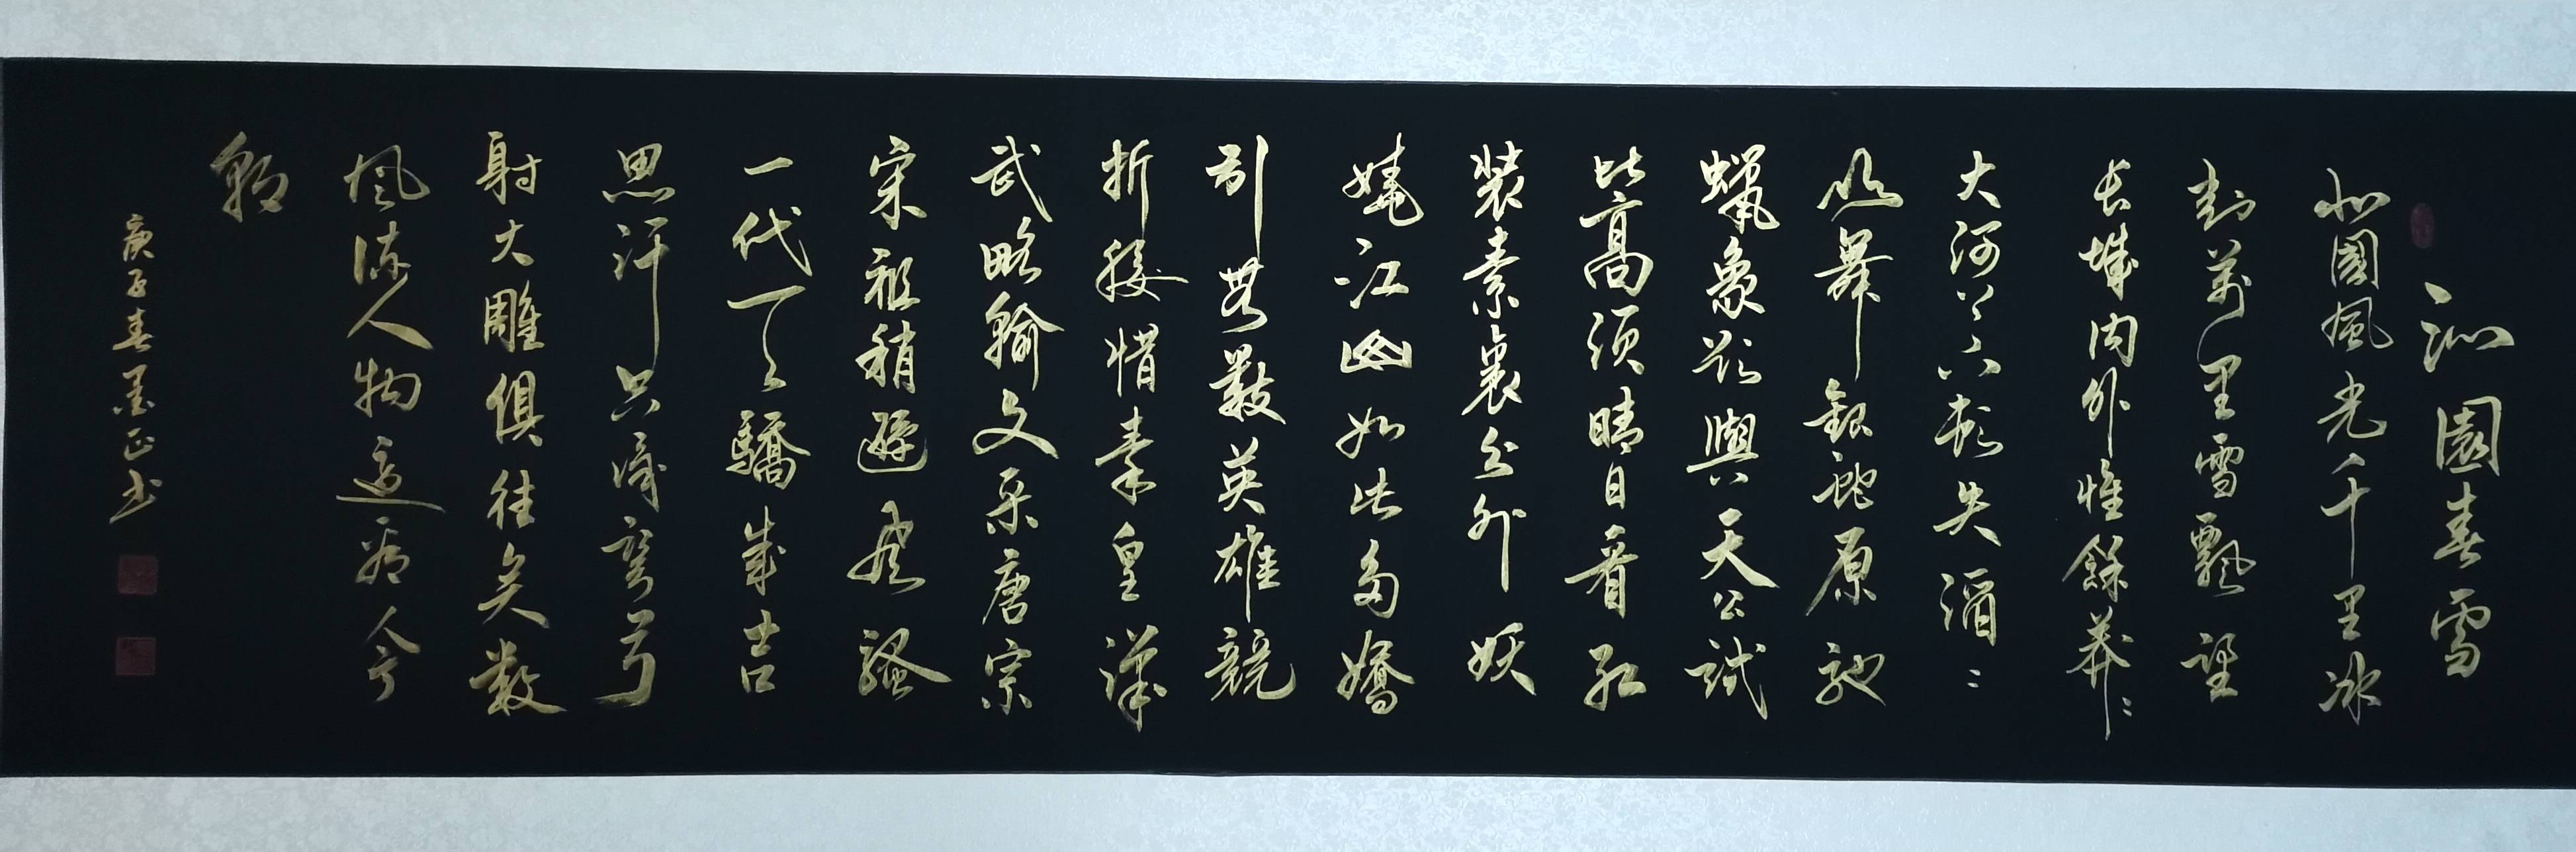 沁園春雪
北國風光千里冰
封萬里雪飄望
長城内外惟餘莽〻
大河上下頓失滔〻
山舞銀蛇原馳
蠟象欲與天公試
比高須晴日看紅
裝素裹分外妖
嬈江山如此多嬌
引無數英雄競
折腰惜秦皇漢
武略輸文采唐宗
宋祖稍遜風騷
一代天驕成吉
思汗只識彎弓
射大雕俱往矣數
風流人物還看今
朝
庚子春墨正书